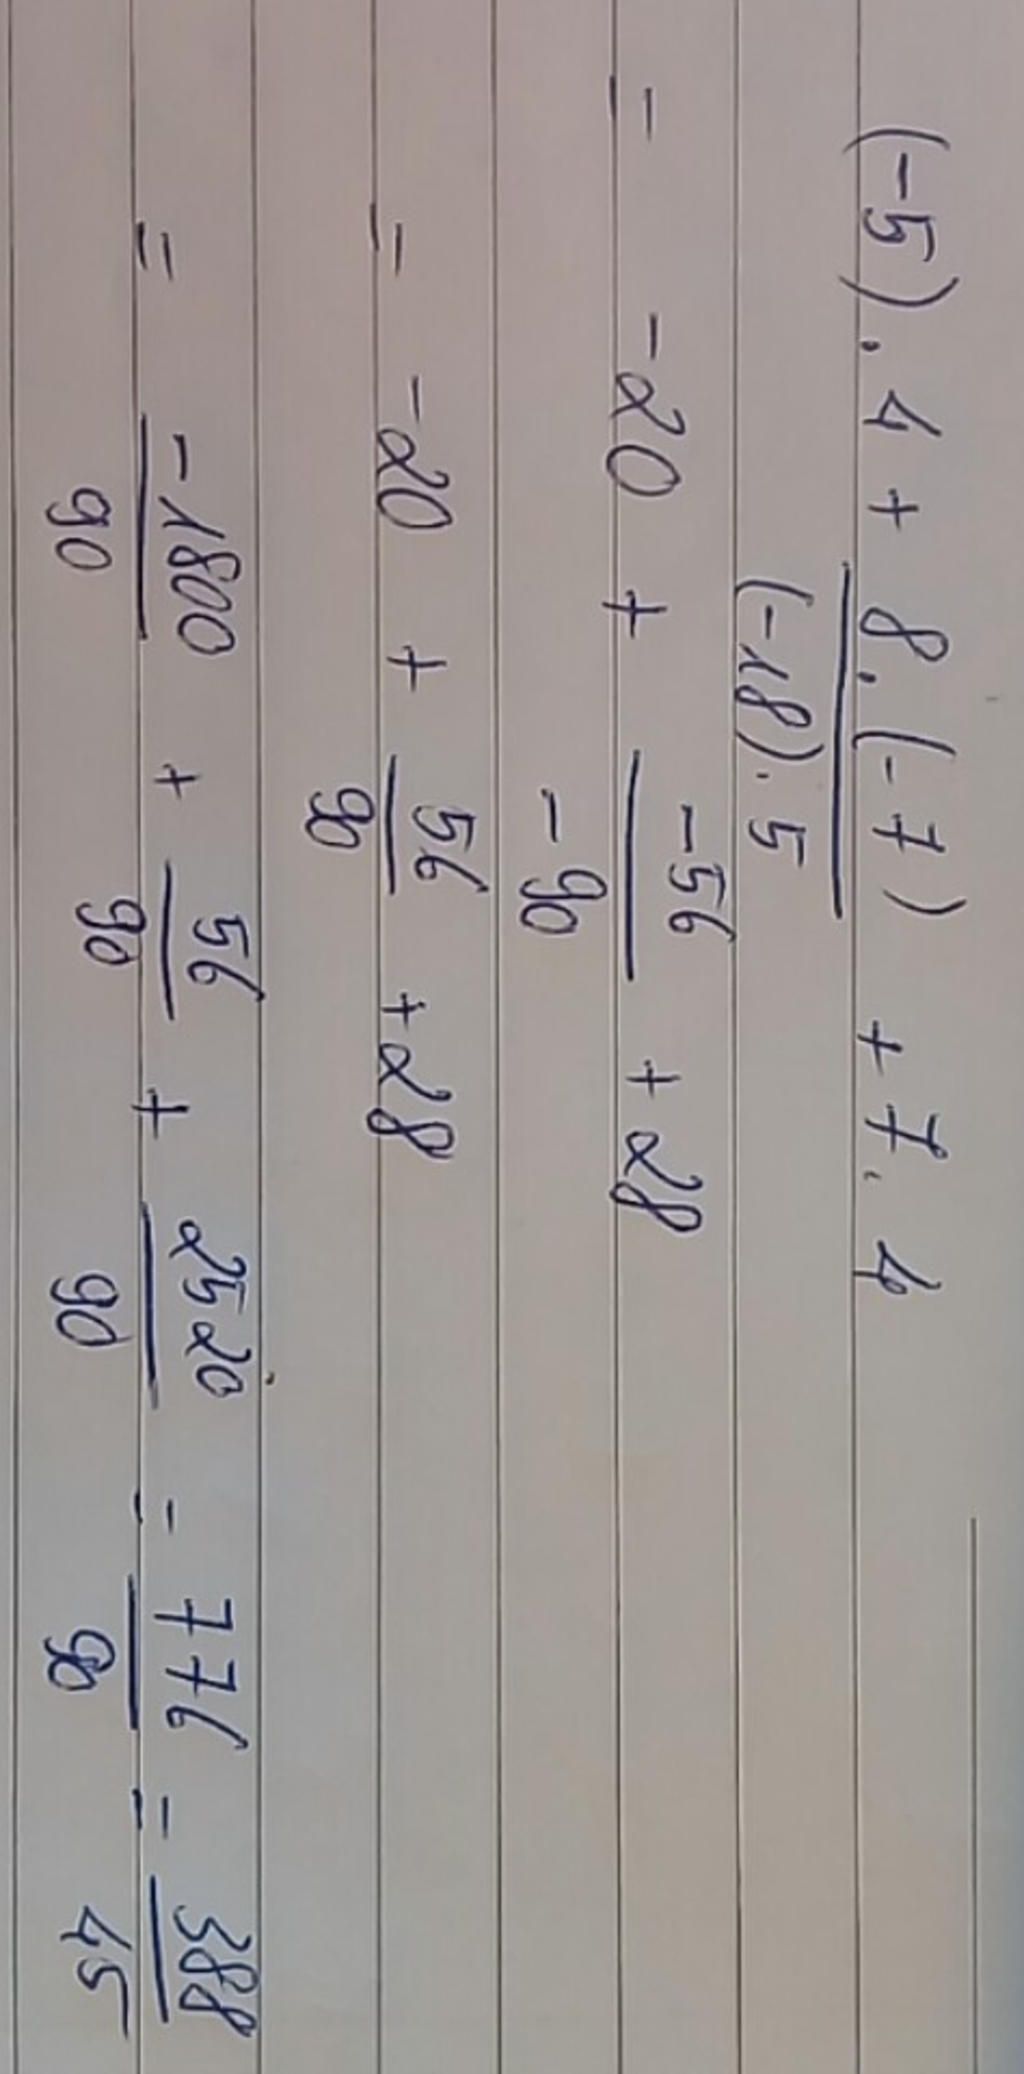 (-5) . 4 + 8 . (-7) / (-18) . 5 + 7 . 4
= -20 + -56 / -90 + 28
= -20 + 56 / 90 + 28
= -1800 / 90 + 56 / 90 + 2520 / 90 = 776 / 90 = 388 / 45